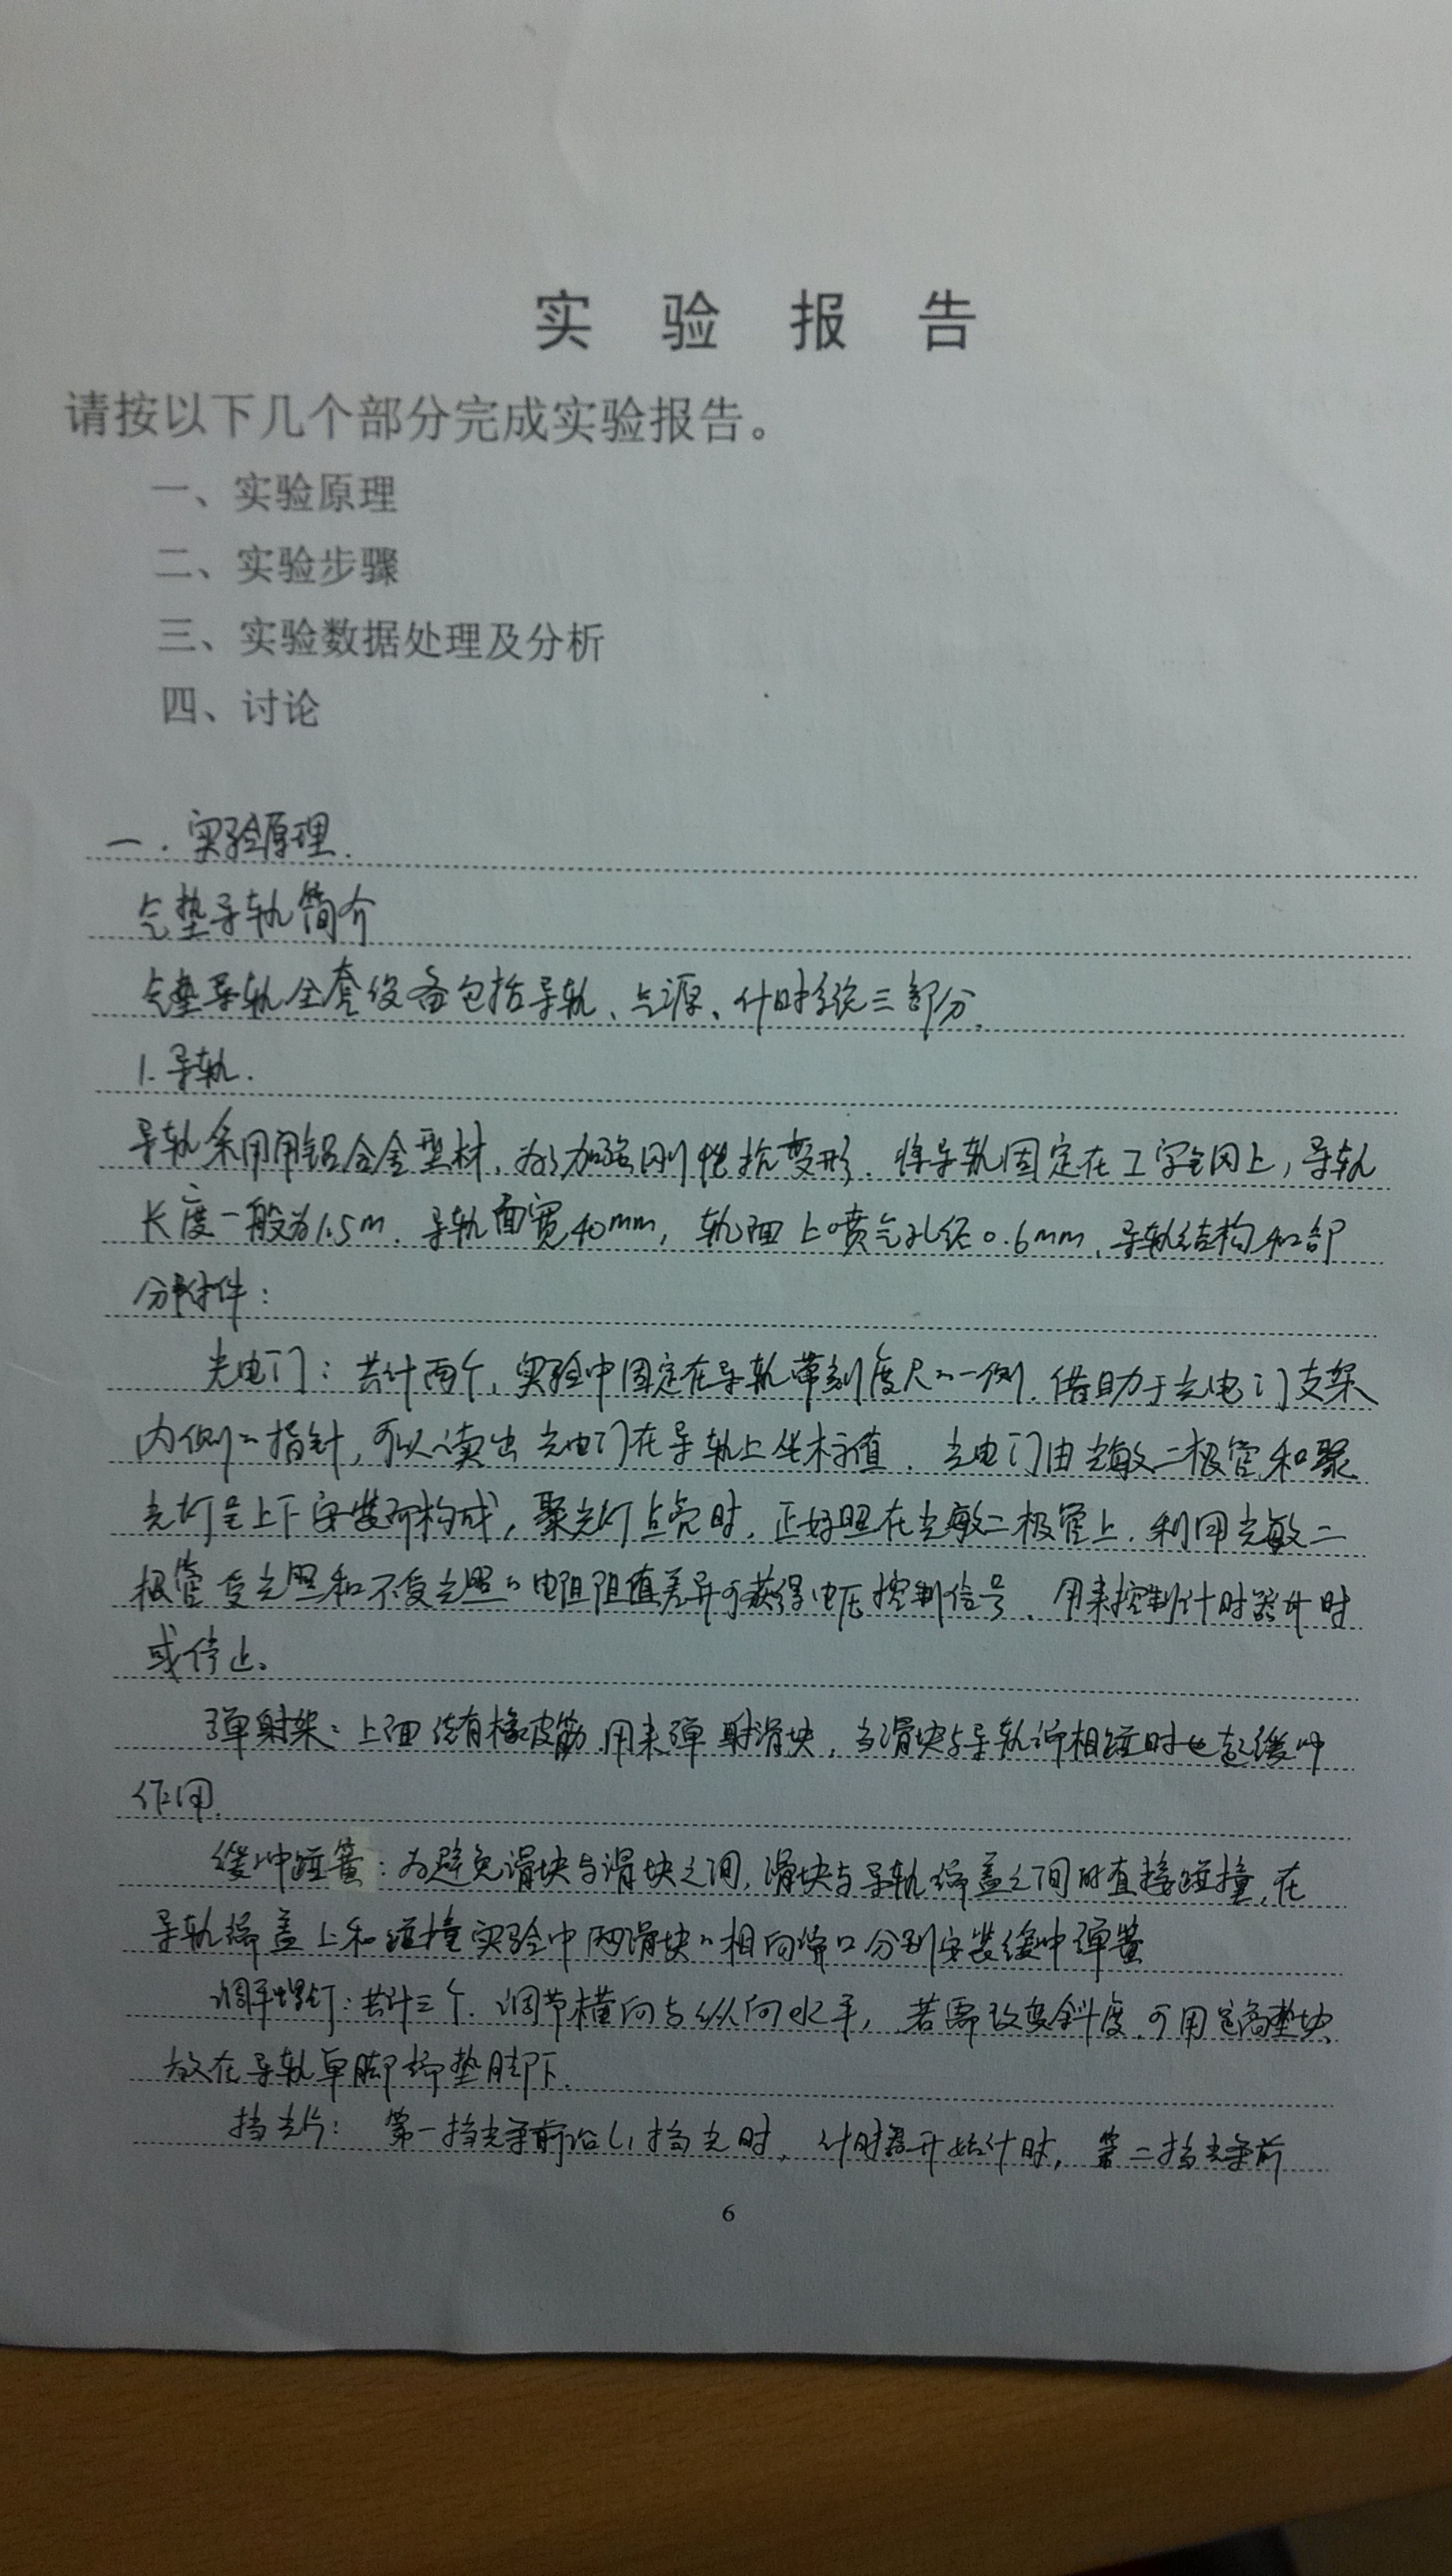 实 验 报 告
请按以下几个部分完成实验报告。
一、实验原理
二、实验步骤
三、实验数据处理及分析
四、讨论
一.实验原理.
气垫导轨简介
气垫导轨全套设备包括导轨、气源、计时系统三部分.
1.导轨.
导轨采用用铝合金型材,为了加强刚性抗变形.将导轨固定在工字钢上,导轨
长度一般为1.5m.导轨面宽40mm,轨面上喷气孔径0.6mm,导轨结构和部
分附件:
光电门:共计两个,实验中固定在导轨带刻度尺的一侧.借助于光电门支架
内侧的指针,可以读出光电门在导轨上坐标值.光电门由光敏二极管和聚
光灯呈上下安装所构成,聚光灯点亮时,正好照在光敏二极管上.利用光敏二
极管受光照和不受光照的电阻阻值差异可获得电压控制信号,用来控制计时器计时
或停止。
弹射架:上面绕有橡皮筋,用来弹射滑块,当滑块与导轨 相碰时也起缓冲
作用.
缓冲碰簧:为避免滑块与滑块之间,滑块与导轨端盖之间的直接碰撞,在
导轨端盖上和碰撞实验中两滑块的相向端口分别安装缓冲弹簧
调平螺钉:共计三个.调节横向与纵向水平,若需改变斜度.可用定高垫块
放在导轨单脚端垫脚下.
挡光片: 第一挡光条前沿L₁挡光时,计时器开始计时,第二挡光条前
6